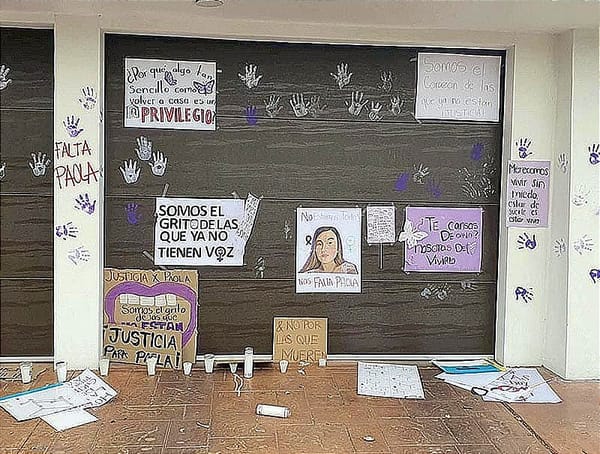 ¿Por qué algo tan
Sencillo como
volver a casa es un
PRIVILEGIO?
Somos el
Corazón de las
que ya no están
¡JUSTICIA!
FALTA
PAOLA
Merecemos
vivir sin
miedo,
estar de
suerte es
estar viva
SOMOS EL
GRITO DE LAS
QUE YA NO
TIENEN VOZ
No Estamos Todas
NOS FALTA PAOLA
¿TE CANSAS
DE OIRNO?
NOSOTRAS DE
VIVIRLO
JUSTICIA X PAOLA
Somos el grito
de las que
NO ESTAN
¡JUSTICIA
PARA PAOLA!
& NO POR
LAS QUE
MUERE